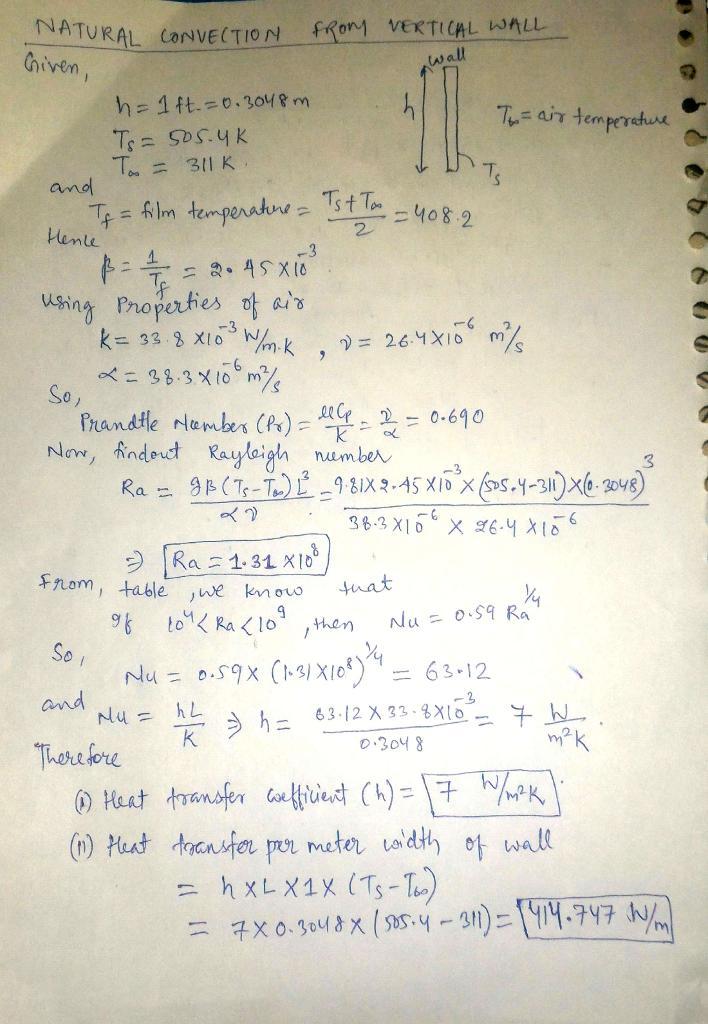 NATURAL CONVECTION FROM VERTICAL WALL
Given,
wall
h = 1 ft. = 0.3048 m
h
T∞ = air temperature
Ts = 505.4K
T∞ = 311 K.
Ts
and
Tf = film temperature = (Ts + T∞)/2 = 408.2
Hence
β = 1/Tf = 2.45 X 10⁻³
Using Properties of air
K = 33.8 X10⁻³ W/m.K , ν = 26.4 X10⁻⁶ m²/s
α = 38.3 X 10⁻⁶ m²/s
So,
Prandtle Number (Pr) = μCp/K = ν/α = 0.690
Now, findout Rayleigh number
Ra = gβ(Ts-T∞)L³/αν = 9.81X2.45 X10⁻³ X (505.4-311) X(0.3048)³ / 38.3 X10⁻⁶ X 26.4 X10⁻⁶
⇒ Ra = 1.31 X10⁸
From, table , we know that
If 10⁴ < Ra < 10⁹ , then Nu = 0.59 Ra^1/4
So,
Nu = 0.59X (1.31 X10⁸)^1/4 = 63.12
and Nu = hL/K ⇒ h = 63.12 X 33.8X10⁻³ / 0.3048 = 7 W/m²K.
Therefore
(i) Heat transfer coefficient (h) = 7 W/m²K.
(ii) Heat transfer per meter width of wall
= h X L X 1 X (Ts-T∞)
= 7 X 0.3048 X (505.4 - 311) = 414.747 W/m